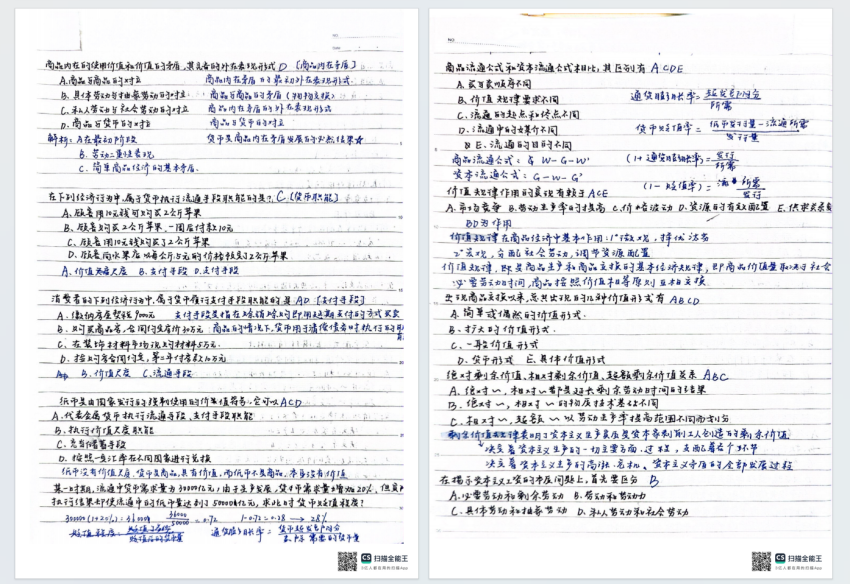 商品内在的使用价值和价值的矛盾，其完备的外在表现形式 D [商品内在矛盾]
A.商品与商品的对立 商品内在矛盾的最初外在表现形式
B.具体劳动与抽象劳动的对立 商品与商品的矛盾（物物交换）
C.私人劳动与社会劳动的对立 商品内在矛盾的外在表现形式
D.商品与货币的对立 商品与货币的对立
解析：A.在最初阶段 货币是商品内在矛盾发展的必然结果
B.劳动二重性表现
C.简单商品经济的基本矛盾.
在下列经济行为中，属于货币执行流通手段职能的是? C (货币职能)
A.顾客用10元钱可购买2公斤苹果
B.顾客购买2公斤苹果，一周后付款10元
C.顾客用10元钱购买了2公斤苹果
D.顾客向水果店以每公斤5元的价格预订2公斤苹果
A.价值尺度 B.支付手段 D.支付手段
消费者的下列经济行为中，属于货币履行支付手段职能的是 AD [支付手段]
A.缴纳房屋契税9000元 支付手段是指在
B.购买商品房，合同约定房价30万元
C.在装饰材料市场购买材料5万元.
D.按购房合同约定，第二年付房款10万元
B.价值尺度 C.流通手段
纸币是由国家发行的强制使用的价值符号，它可以 ACD
A.代替金属货币执行流通手段、支付手段职能
B.执行价值尺度职能
C.充当储蓄手段
D.按照一定汇率在不同国家进行兑换
纸币没有价值尺度，货币是商品，具有价值，而纸币不是商品，本身没有价值
某一时期，流通中货币需求量为30000亿元，由于生产发展，货币需求量增加20%，但实际
执行结果却使流通中的纸币量达到了50000亿元，求此时货币贬值程度?
30000(1+20%)=36000 36000/50000=0.72 1-0.72=0.28 → 28%
商品流通公式和资本流通公式相比，其区别有 ACDE
A.买与卖顺序不同
B.价值规律要求不同
C.流通的起点和终点不同
D.流通中的媒介不同
E.流通的目的不同
商品流通公式： W-G-W'
资本流通公式：G-W-G'
价值规律作用的表现有赖于 ACE
A.市场竞争 B.劳动生产率的提高 C.价格波动 D.资源的有效配置 E.供求关系
BD为作用
价值规律在商品经济中基本作用：1°微观，择优汰劣
2°宏观，分配社会劳动，调节资源配置
价值规律，即是商品生产和商品交换的基本经济规律，即商品价值量取决于社会
必要劳动时间，商品按照价值相等原则互相交换
出现商品交换以来，总共出现的几种价值形式有 ABCD
A.简单或偶然的价值形式.
B.扩大的价值形式.
C.一般价值形式
D.货币形式 E.具体价值形式
绝对剩余价值、相对剩余价值、超额剩余价值关系 ABC
A.绝对～，相对～都是延长剩余劳动时间的结果
B.绝对～，相对～的物质技术基础不同
C.相对～，超额～以劳动生产率提高范围不同而划分
剩余价值规律表明了资本主义生产实质是资本家剥削工人创造的剩余价值
决定着资本主义生产的一切主要方面，过程，支配着各个环节
决定着资本主义生产的高涨、危机、资本主义矛盾的全部发展过程
在揭示资本主义工资的本质问题上，首先要区分 B
A.必要劳动和剩余劳动 B.劳动和劳动力
C.具体劳动和抽象劳动 D.私人劳动和社会劳动
CS 扫描全能王
3亿人都在用的扫描App
CS 扫描全能王
3亿人都在用的扫描App